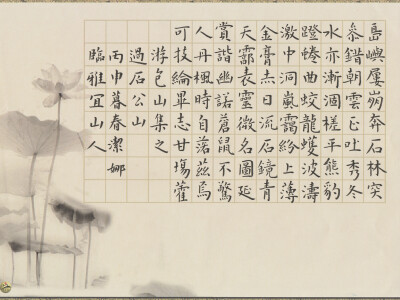 島嶼屢崩奔石林突
叅錯朝雲正吐秀冬
水亦漸涸槎平熊豹
蹬蜷曲蛟龍蠖波濤
激中洞嵐靄紛上薄
金膏杰日流石鏡青
天霝表靈微名圖延
賞諧幽諾蒼鼠不驚
人丹楓時自落茲焉
可技綸畢志甘場藿
游包山集之
過石公山
丙申暮春潔娜
臨雅宜山人